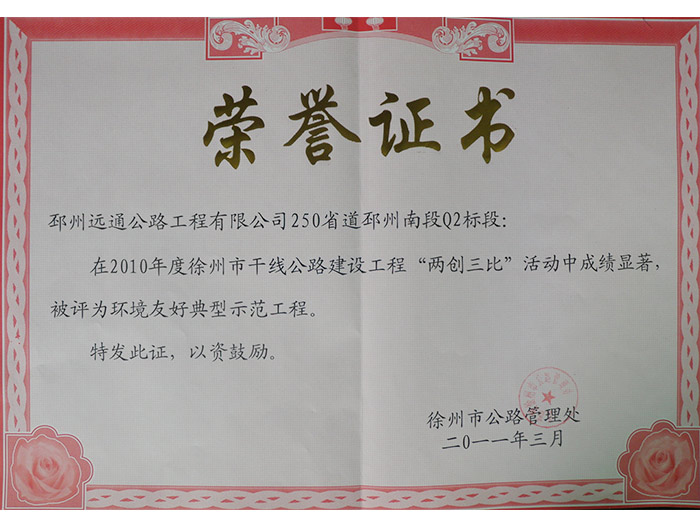 荣誉证书
邳州远通公路工程有限公司250省道邳州南段Q2标段：
在2010年度徐州市干线公路建设工程“两创三比”活动中成绩显著，
被评为环境友好典型示范工程。
特发此证，以资鼓励。
徐州市公路管理处
二〇一一年三月